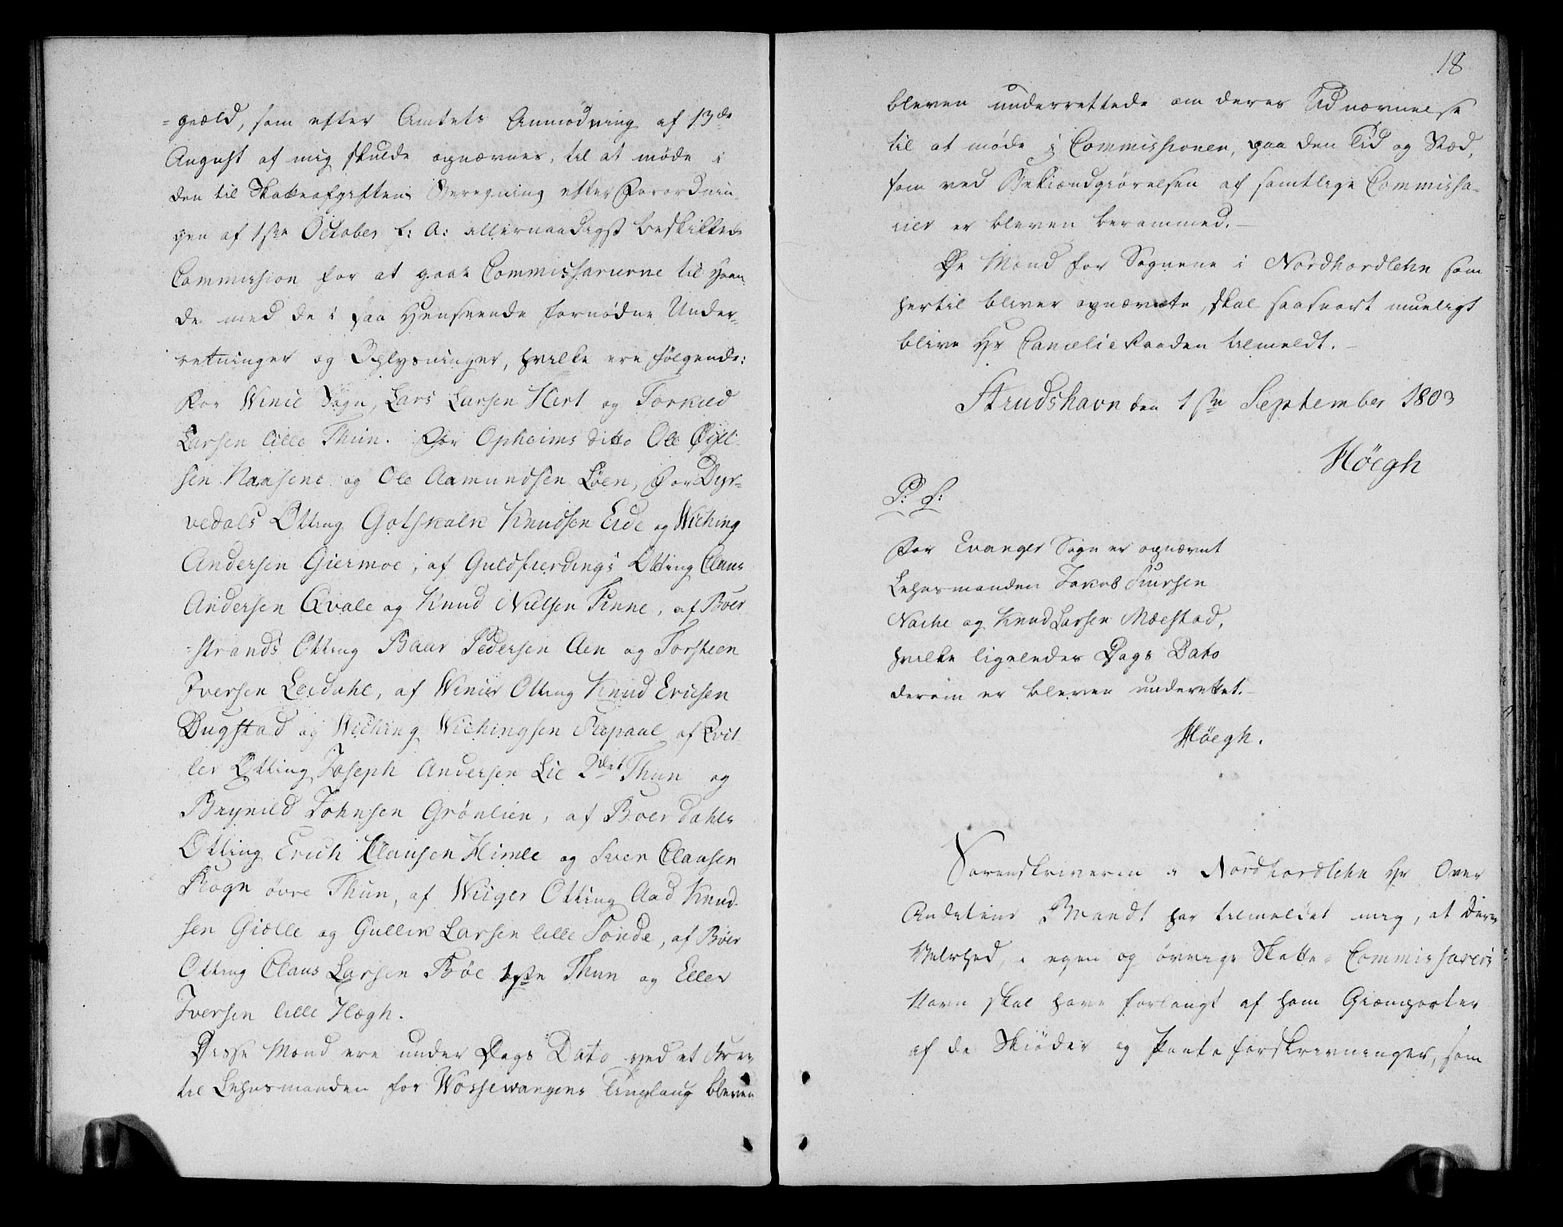 -giæld, som efter Amtets Anmodning af 13de
August af mig skulde opnævnes, til at møde i
den til Skatteafgiftens Beregning efter Forordnin-
gen af 1ste October f: A: allernaadigst beskikkede
Commission for at gaae Commissairerne til Haan-
de med de i saa Henseende fornødne Under-
retninger og Oplysninger, hvilke ere følgende:
For Winie Sogn, Lars Larsen Hert og Torkild
Larsen lille Thun. For Opheims ditto Ole
sen og Ole Aamundsen Løen, For Dyr-
vedals Otting Gotskalk Knudsen Eide og Wiching
Andersen Giermoe, af Guldfierdings Otting Claus
Andersen Qvale og Knud Nielsen Finne, af Boer
strands Otting Baar Pedersen Aen og Torsteen
Iversen Leidahl, af Winier Otting Knud Erichsen
Dugstad og Wiching Wichingsen af Qvit
ler Otting Joseph Andersen Lie 2det Thun og
Brynild Johnsen Grønlien, af Boer Dahls
Otting Erich Clausen Himle og Sver Clausen
Rogn øvre Thun, af Wiiger Otting Aad Knud-
sen Giølle og Gullik Larsen lille Tønde, af Bøer
Otting Claus Larsen Bøe 1ste Thun og Eller
Iversen lille Hægh.
Disse Mænd ere under Dags Dato ved et Brev
til Lehnsmanden for Wossewangens Tinglaug bleven
18
bleven underrettede om deres Udnævnelse
til at møde i Commissionen, paa den Tid og Stæd,
som ved Bekiændgiørelsen af samtlige Commissa-
rier er bleven berammed.-
De Mænd for Sognene i Nordhordlehn som
hertil bliver opnævnte, skal saasnart mueligt
blive Hr Cancelie Raaden tilmeldt.-
Strudshavn den 1ste September 1803
Høegh
P: S:
For Evanger Sogn er opnævnt
Lehnsmanden Jakob
og Knud Larsen Mæstad,
hvilke ligeledes Dags Dato
derom er bleven underettet.-
Høegh.
Sorenskriveren i Nordhordlehn Hr Over
Auditeur Brandt har tilmeldet mig, at Deres
Velærhed, i egen og øvrige Skatte-Commissairers
Navn skal have forlangt af ham Gienparter
af de Skiøder og Panteforskrivninger, som